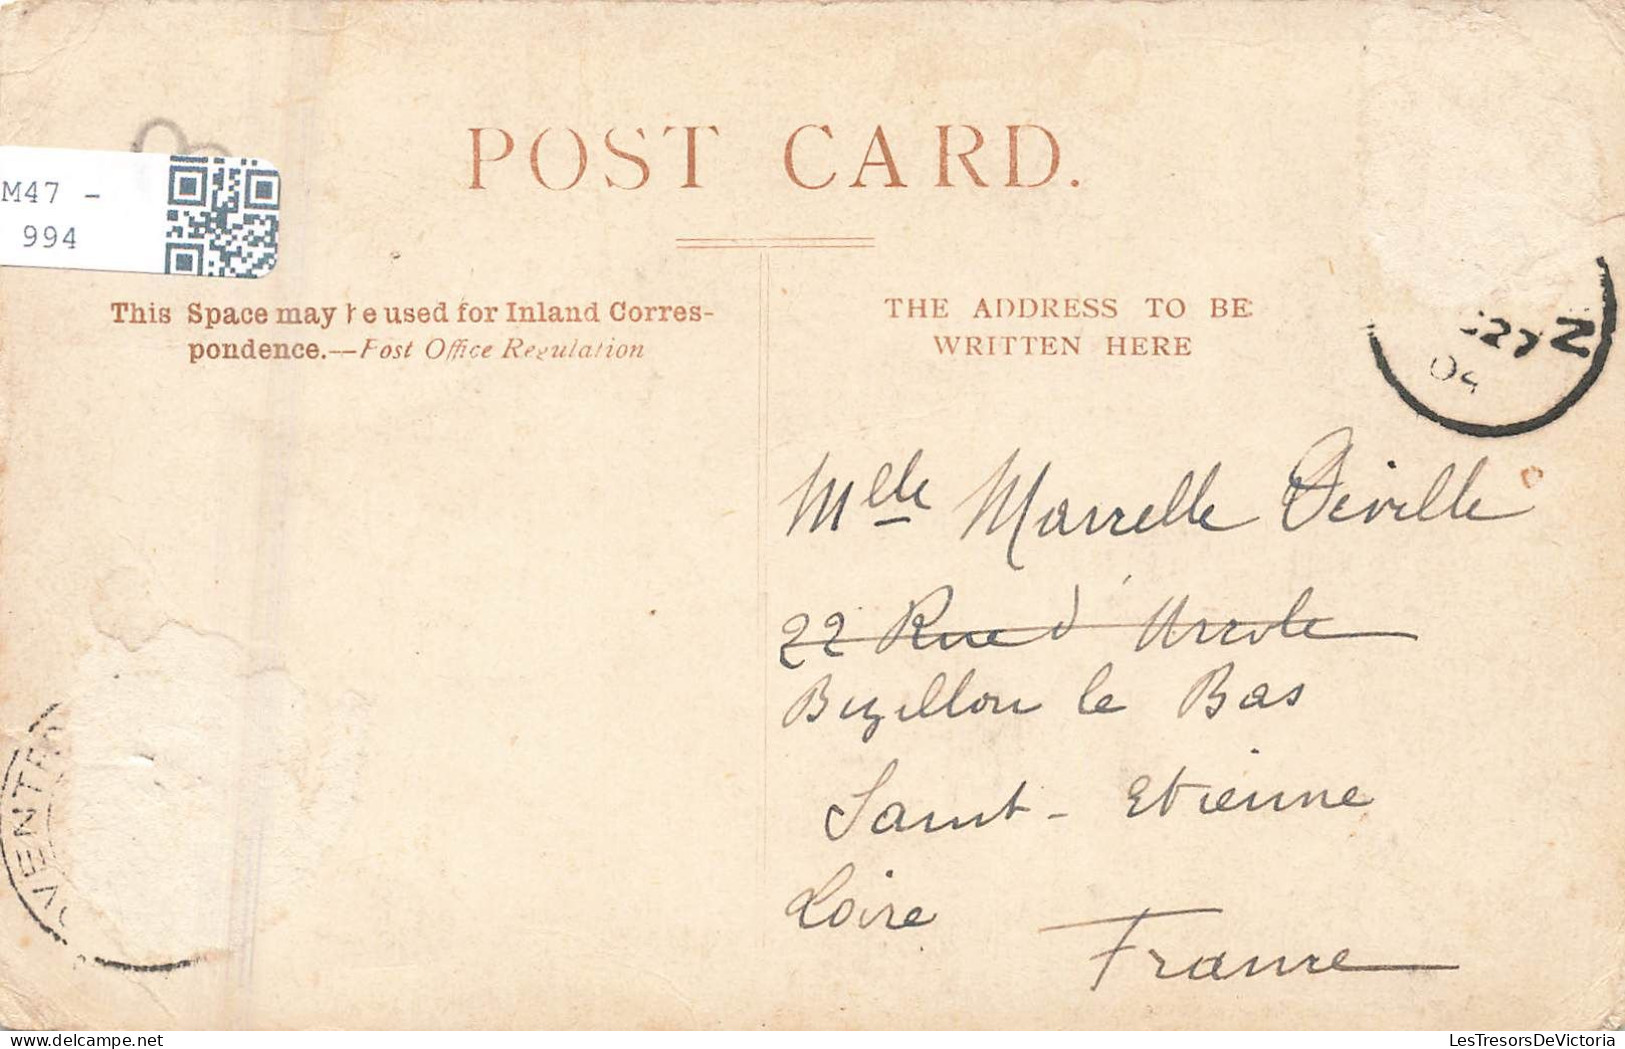 POST CARD.
M47 -
994
This Space may be used for Inland Corres-
pondence.—Post Office Regulation
THE ADDRESS TO BE
WRITTEN HERE
27 N
04
Melle Marcelle Déville
22 Rue d'Arcole
Bizillon le Bas
Saint-Etienne
Loire
France
OVENTR
LesTresorsDeVictoria